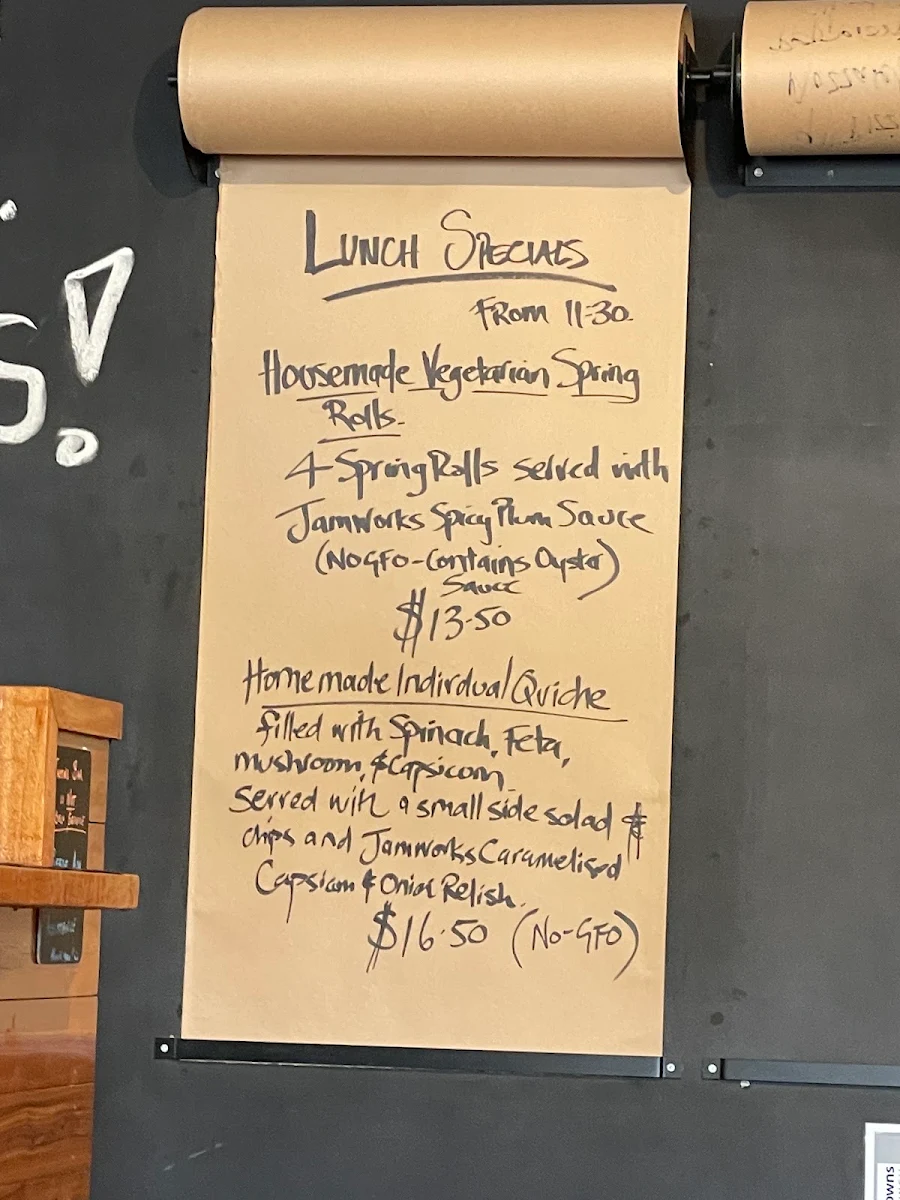 LUNCH SPECIALS
FROM 11-30.
Housemade Vegetarian Spring
Rolls.
4 Spring Rolls served with
Jamworks Spicy Plum Sauce
(NO GFO - Contains Oyster)
Sauce
$13.50
Homemade Indirdual Quiche
filled with Spinach, Feta,
mushroom, & Capsicum
Served with a small side salad &
chips and Jamworks Caramelised
Capsicum & Onion Relish.
$16.50 (No-GFO)
S!
owns